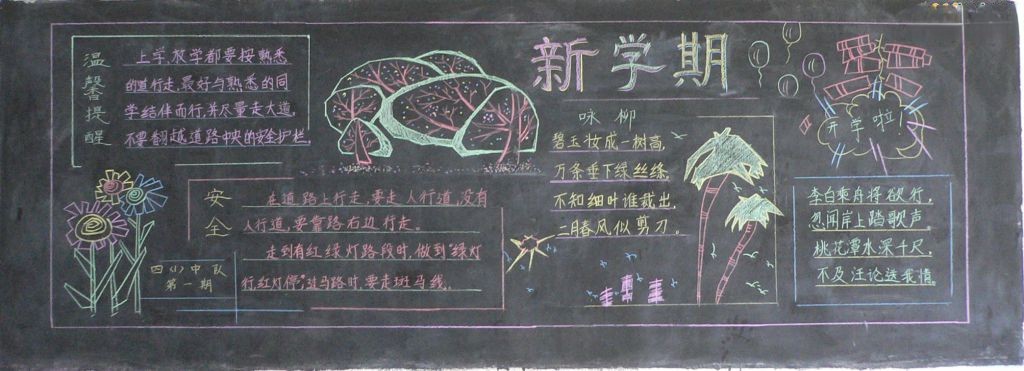 新学期
温馨提醒
上学放学都要按熟悉
的道行走,最好与熟悉的同
学结伴而行,并尽量走大道,
不要翻越道路中央的安全护栏.
安全
在道路上行走,要走人行道,没有
人行道,要靠路右边行走。
走到有红绿灯路段时,做到“绿灯
行,红灯停”,过马路时,要走斑马线。
四(1)中队
第一期
咏柳
碧玉妆成一树高,
万条垂下绿丝绦,
不知细叶谁裁出,
二月春风似剪刀。
开学啦!
李白乘舟将欲行,
忽闻岸上踏歌声。
桃花潭水深千尺,
不及汪论送我情。